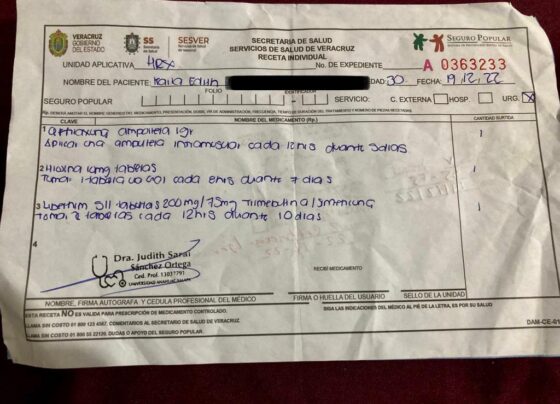 VERACRUZ
GOBIERNO
DEL ESTADO
SS
Secretaría
de Salud
SESVER
Servicios de Salud
de Veracruz
SECRETARIA DE SALUD
SERVICIOS DE SALUD DE VERACRUZ
RECETA INDIVIDUAL
SEGURO POPULAR
UNIDAD APLICATIVA
No. DE EXPEDIENTE
A 0363233
NOMBRE DEL PACIENTE: Karla Edith
EDAD: 30 FECHA: 19.12.22
FOLIO
CERTIFICADOR
SEGURO POPULAR
SERVICIO: C. EXTERNA HOSP. URG. X
CLAVE
NOMBRE DEL MEDICAMENTO (Rp.)
CANTIDAD SURTIDA
1 ampolleta 1gr 1
una ampolleta intramuscular cada 12hrs durante 3dias
2 10mg tabletas 1
Tomar 1 tableta cada 8hrs durante 7 dias
3 Libertrim SII tabletas 200mg/75mg 1
tabletas cada 12hrs durante 10 dias
4
Dra. Judith Sarai
Sánchez Ortega
Ced. Prof. 13037791
RECIBÍ MEDICAMENTO
NOMBRE, FIRMA AUTOGRAFA Y CEDULA PROFESIONAL DEL MÉDICO
FIRMA O HUELLA DEL USUARIO
SELLO DE LA UNIDAD
ESTA RECETA NO ES VALIDA PARA PRESCRIPCIÓN DE MEDICAMENTO CONTROLADO.
SIGA LAS INDICACIONES DEL MÉDICO AL PIE DE LA LETRA, ES POR SU SALUD
LLAMA SIN COSTO 01 800 123 4567. COMENTARIOS AL SECRETARIO DE SALUD DE VERACRUZ.
LLAMA SIN COSTO 01 800 55 22120. DUDAS O APOYO DEL SEGURO POPULAR.
DAM-CE-01